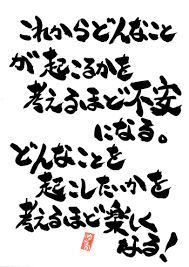 これからどんなこと
が起こるかを
考えるほど不安
になる。
どんなことを
起こしたいかを
考えるほど楽しく
なる!